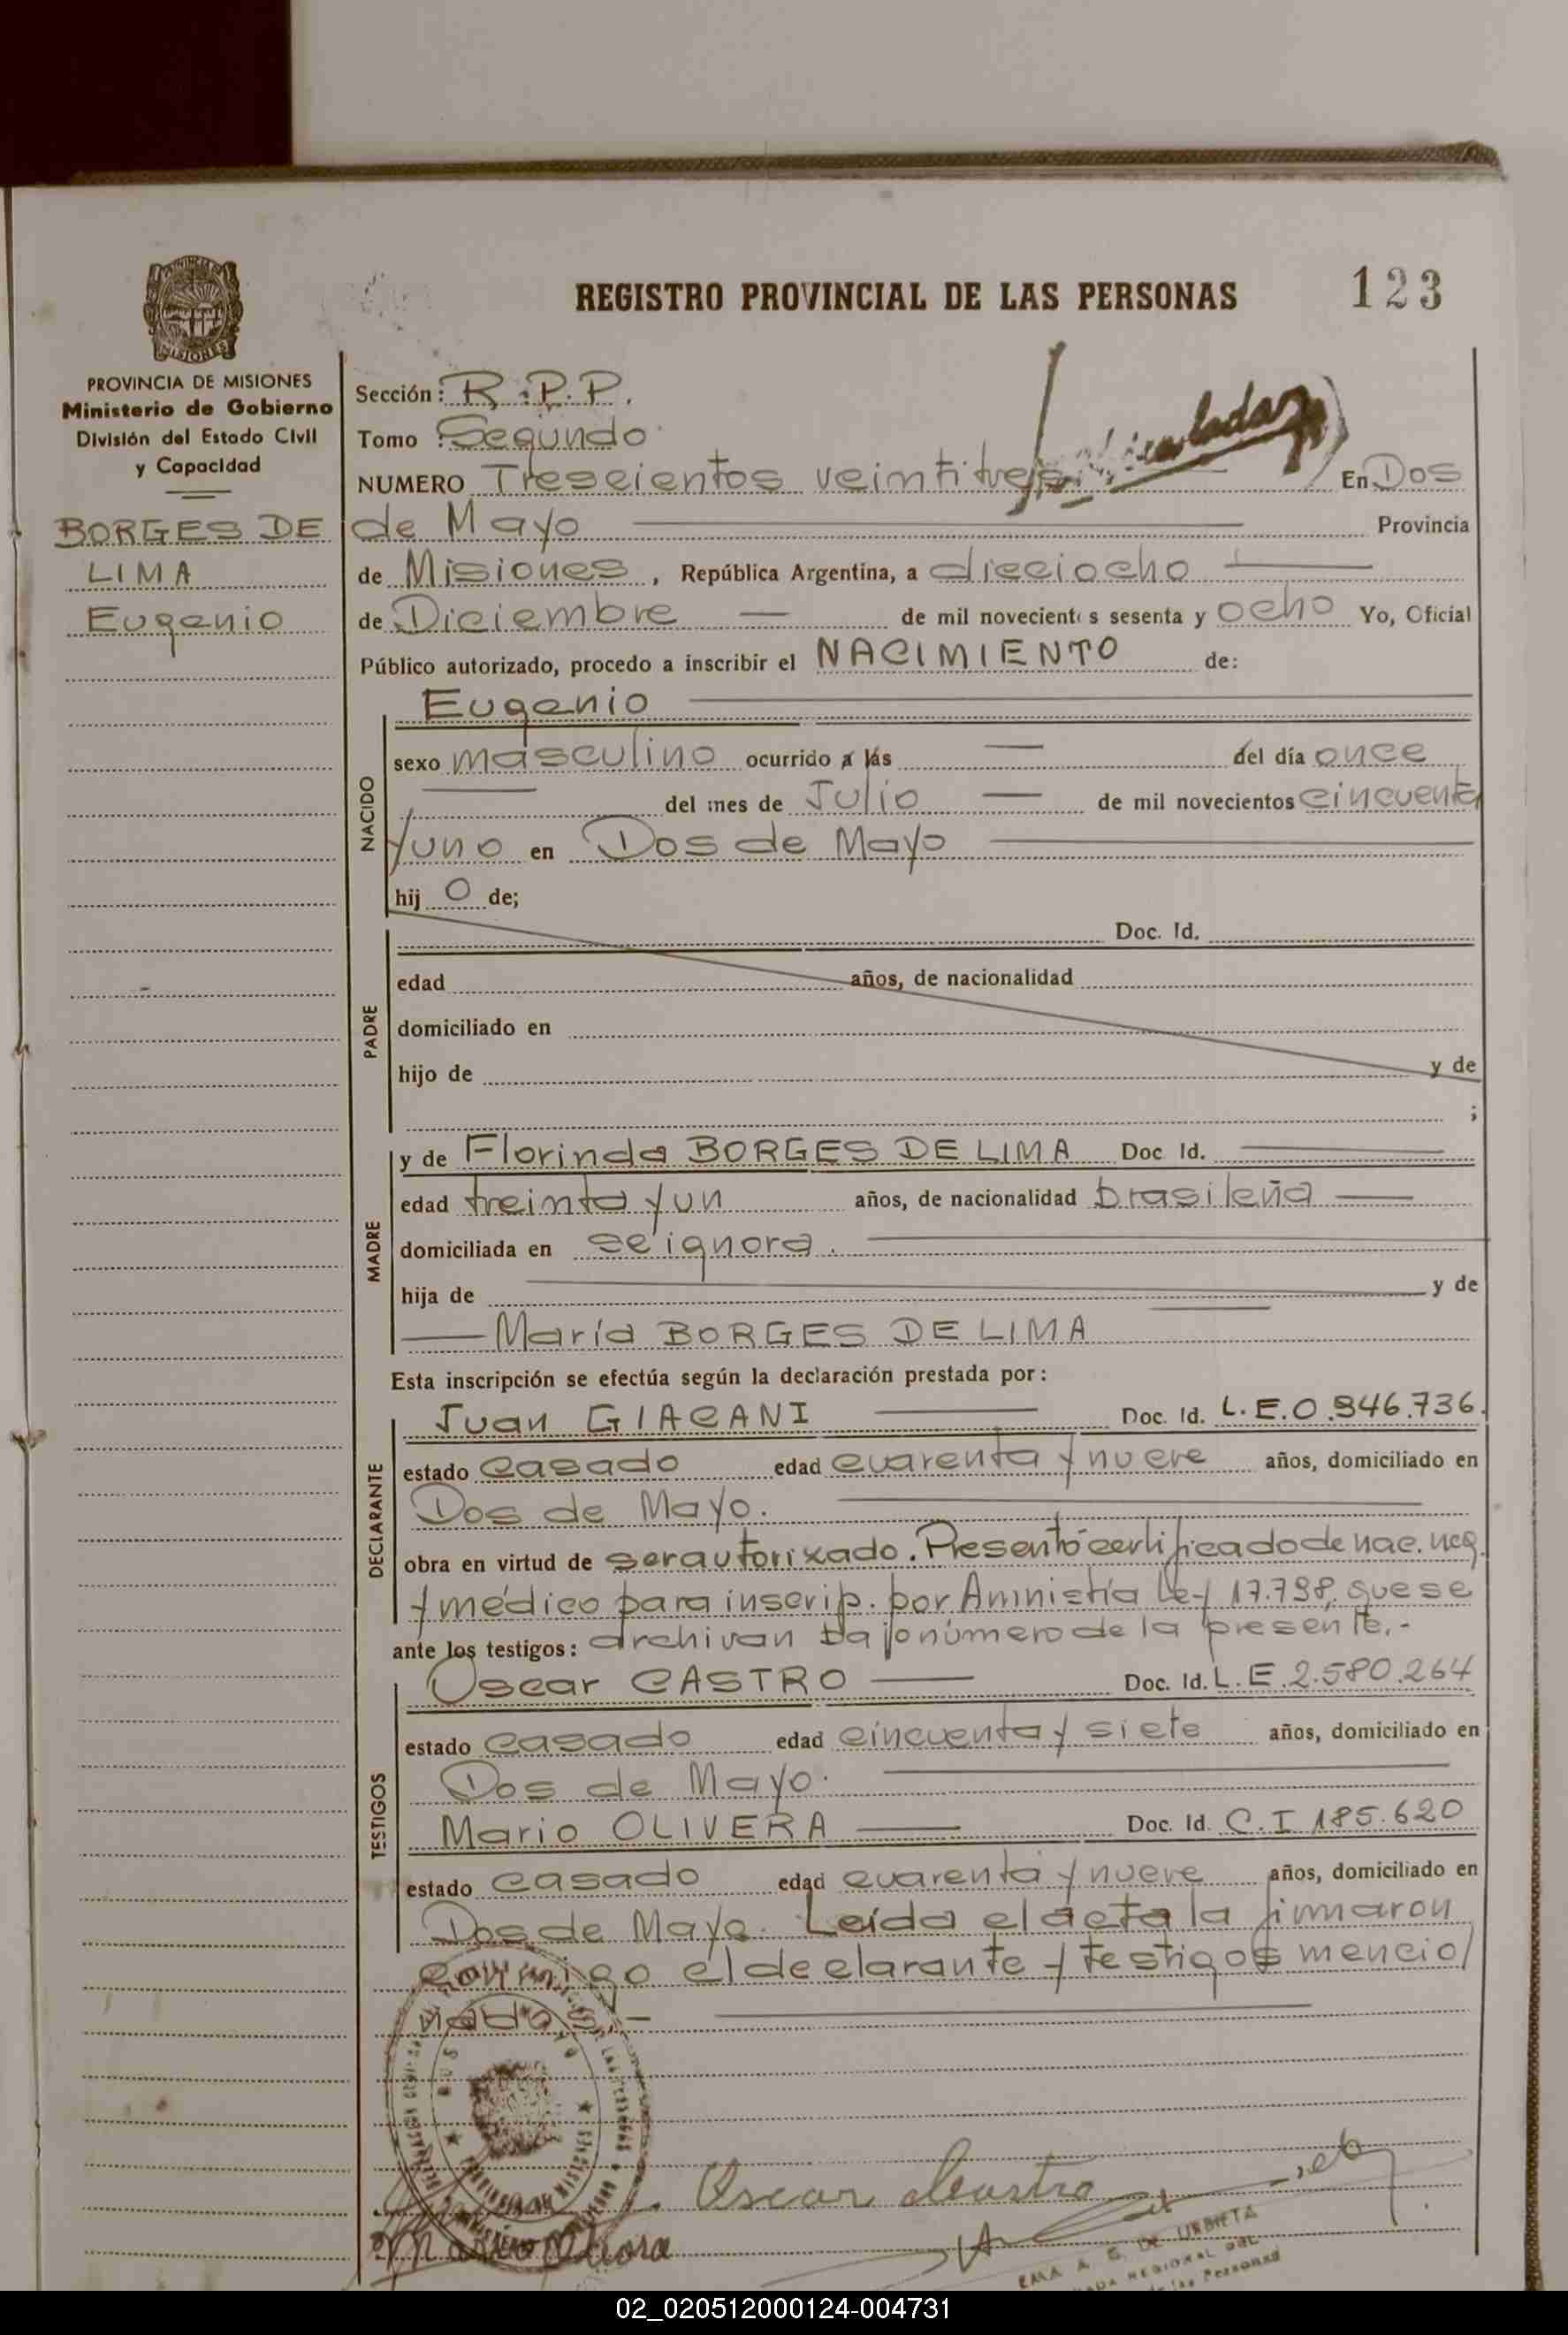 REGISTRO PROVINCIAL DE LAS PERSONAS
123
PROVINCIA DE MISIONES
Ministerio de Gobierno
División del Estado Civil
y Capacidad
BORGES DE
LIMA
Eugenio
Sección: R.P.P.
Tomo: Segundo
NUMERO Trescientos veintitres En Dos
de Mayo Provincia
de Misiones, República Argentina, a dieciocho
de Diciembre de mil novecientos sesenta y ocho Yo, Oficial
Público autorizado, procedo a inscribir el NACIMIENTO de:
NACIDO
Eugenio
sexo masculino ocurrido a las del día once
del mes de Julio de mil novecientos cincuenta
y uno en Dos de Mayo
hij o de;
PADRE
Doc. Id.
edad años, de nacionalidad
domiciliado en
hijo de y de
;
MADRE
y de Florinda BORGES DE LIMA Doc Id.
edad treinta y un años, de nacionalidad brasileña
domiciliada en se ignora.
hija de y de
María BORGES DE LIMA
Esta inscripción se efectúa según la declaración prestada por:
DECLARANTE
Juan GIACANI Doc. Id. L.E.0.946.736.
estado casado edad cuarenta y nueve años, domiciliado en
Dos de Mayo.
obra en virtud de ser autorixado. Presentó certificado de nac. neg.
y médico para inscrip. por Amnistía Ley 17.798, que se
ante los testigos: archivan bajo número de la presente.-
TESTIGOS
Oscar CASTRO Doc. Id. L.E.2.580.264
estado casado edad cincuenta y siete años, domiciliado en
Dos de Mayo.
Mario OLIVERA Doc. Id. C.I 185.620
estado casado edad cuarenta y nueve años, domiciliado en
Dos de Mayo. Leída el acta la firmaron
conmigo el declarante y testigos mencio/
nados.-
Oscar Castro
Mario Olivera
EMA A. G. DE URBIETA
REGIONAL DEL
de las Personas
02_020512000124-004731